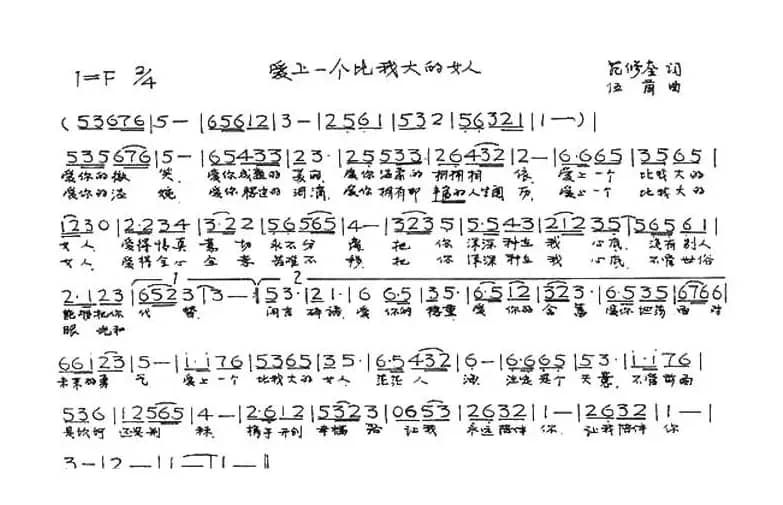 爱上一个比我大的女人
1=F 3/4
范修奎 词
伍 曲
( 53676 | 5 — | 65612 | 3 — | 2561 | 532 | 56321 | 1 — ) |
535676 | 5 — | 65433 | 23· | 25533 | 26432 | 2 — | 6·665 | 3565 |
爱你的微笑 爱你成熟的美丽 爱你温柔的拥拥相依 爱上一个 比我大的
爱你的 爱你 的 爱你拥有那 的人生阅历 爱上一个 比我大的
1230 | 2·234 | 3·22 | 56565 | 4 — | 3235 | 5·543 | 21235 | 56561 |
女人 爱得情真意切 永不分离 把你深深种在我 心底 没有别人
女人 爱得全心全意 谁不移 把你深深种在我 心底 不管世俗
1 2
2·123 | 6523 | 3 — :| 53· | 21· | 6 6·5 | 35· | 6·512 | 323· | 6·535 | 6766 |
能够把你 代替 闲言碎语 爱你的稳重 爱你的含蓄 爱你坦荡面对
眼光和
66123 | 5 — | i·i76 | 5365 | 35· | 6·5432 | 6 — | 6·665 | 53· | i·i76 |
未来的勇气 爱上一个 比我大的 女人 茫茫人海 注定是个 天意 不管前面
536 | 12565 | 4 — | 2·612 | 5323 | 0653 | 2632 | 1 — | 2632 | 1 — |
是坎坷 还是荆棘 携手开创 幸福路 让我 永远陪伴 你 让我陪伴 你
3 — | 2 — | 1 — | 1 — |